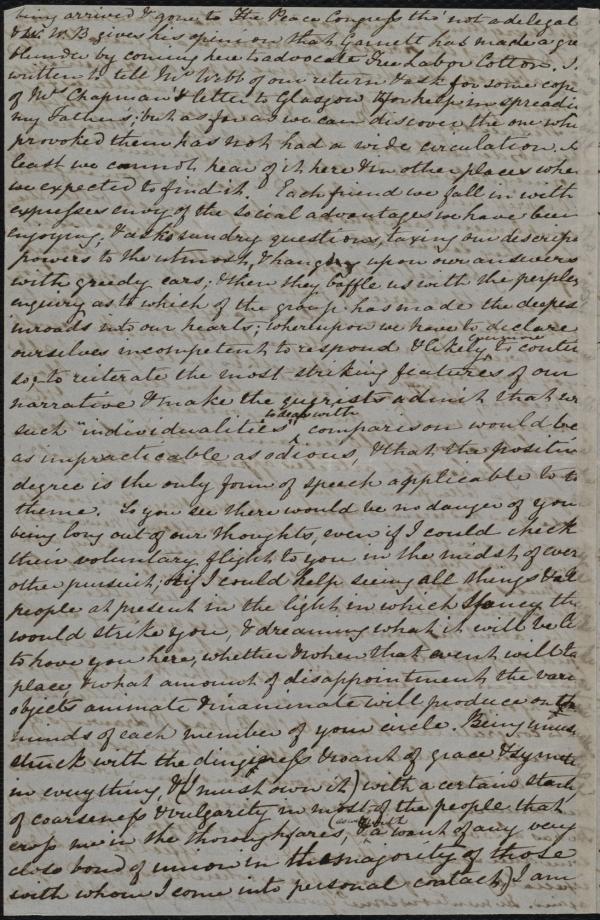 being arrived & gone to The Peace Congress tho' not a delegat
& Mr. W. B. gives his opinion that Garnett has made a gre
blunder by coming here to advocate Free Labor Cotton. I
written to tell Mr. Webb of our return & ask for some copi
of Mrs Chapman's letter to Glasgow & for help in spreadin
my Father's; but as far as we can discover the one whi
provoked them has not had a wide circulation. A
least we cannot hear of it here & in other places wher
we expected to find it. Each friend we fall in with
expresses envy of the social advantages we have been
enjoying, & asks sundry questions, taxing our descrip
powers to the utmost, & hanging upon our answers
with greedy ears; & then they baffle us with the perplex
enquiry as to which of the group has made the deepes
inroads into our hearts; whereupon we have to declare
ourselves incompetent to respond & likely to continue
so, & to reiterate the most striking features of our
narrative & make the querists admit that wi
such "individualities" to deal with comparison would be
as impracticable as odious, & that the positiv
degree is the only form of speech applicable to t
theme. So you see there would be no danger of you
being long out of our thoughts, even if I could check
their voluntary flight to you in the midst of ever
other pursuit; or if I could help seeing all things & al
people at present in the light in which I fancy th
would strike you, & dreaming what it will be li
to have you here, whether & when that event will ta
place, & what amount of disappointment the vari
objects animate & inanimate will produce on the
minds of each member of your circle. Being
struck with the dinginess & want of grace & symet
in everything, & (I must own it) with a certain
of coarseness & vulgarity in most of the people that
cross me in the thoroughfares, & a want of any very
close bond of union in the majority of those
with whom I come into personal contact,) I am